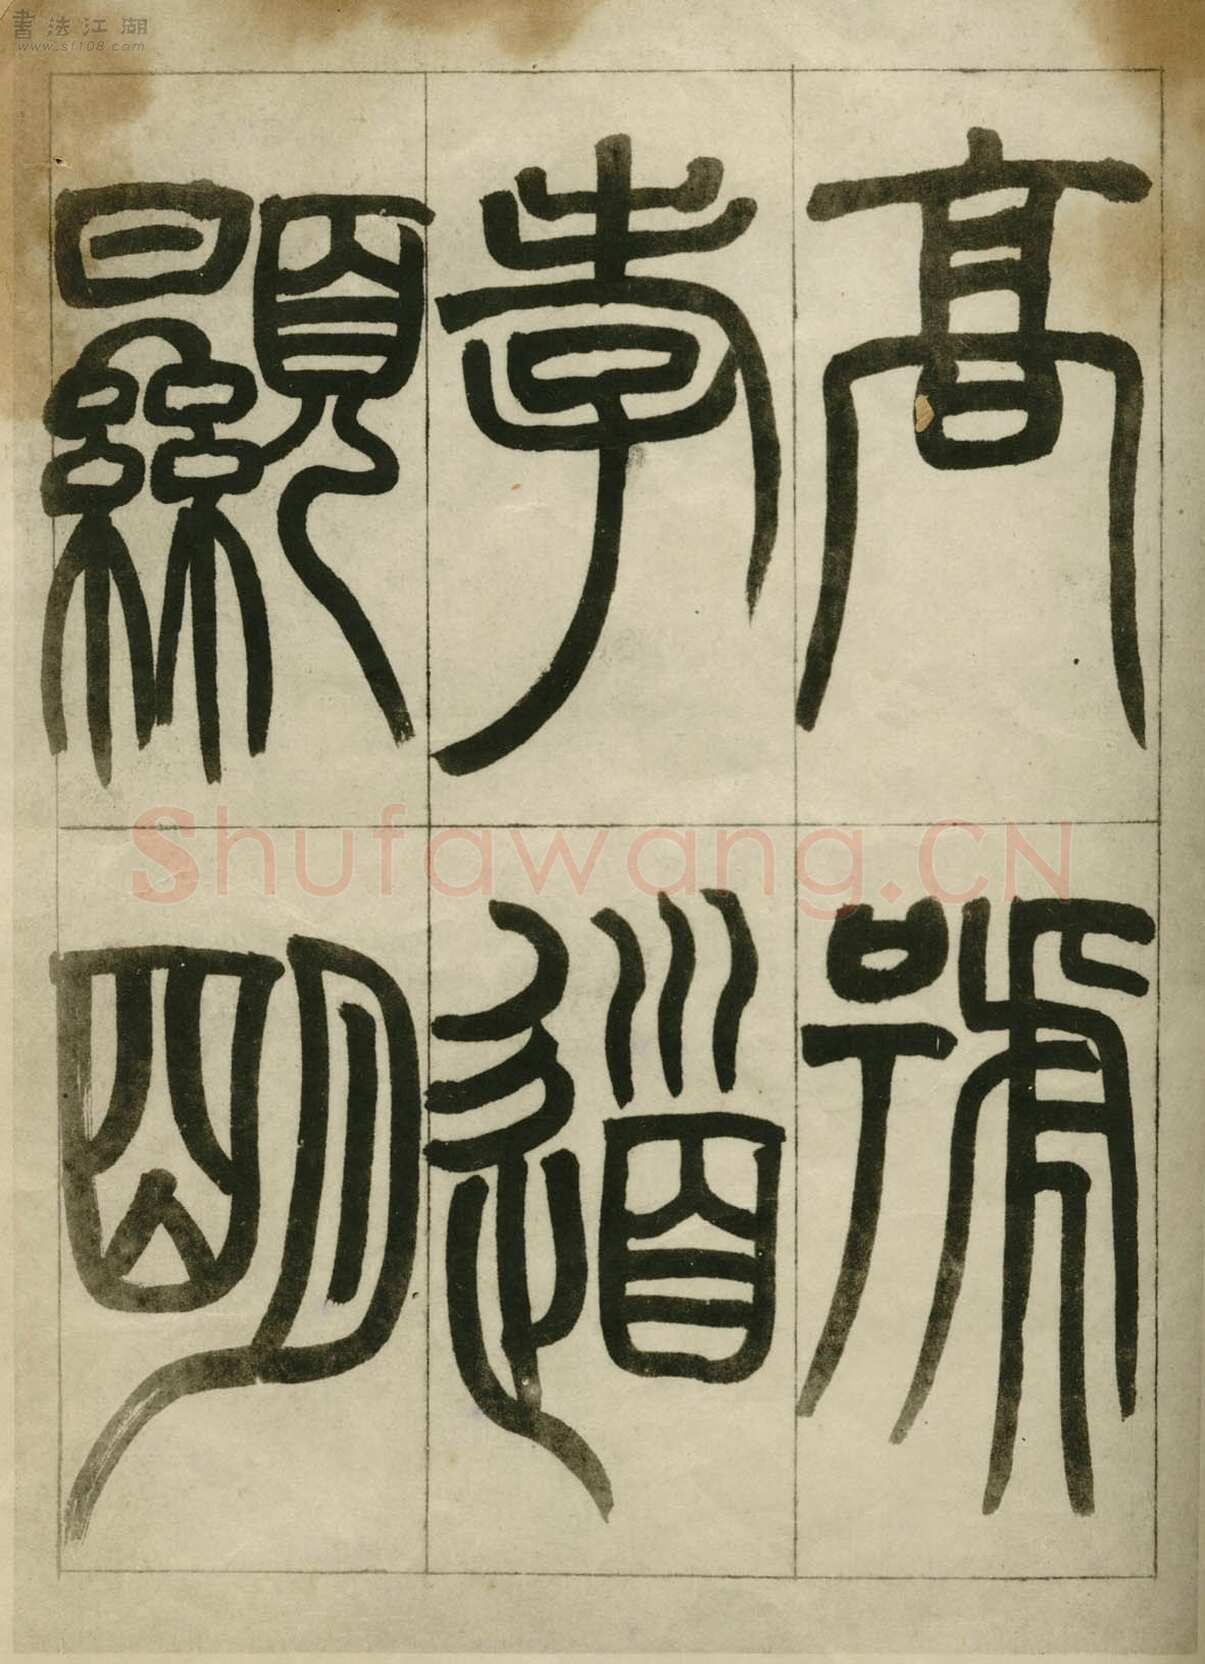 高號
孝道
顯明
書法江湖
www.sf108.com
Shufawang.CN